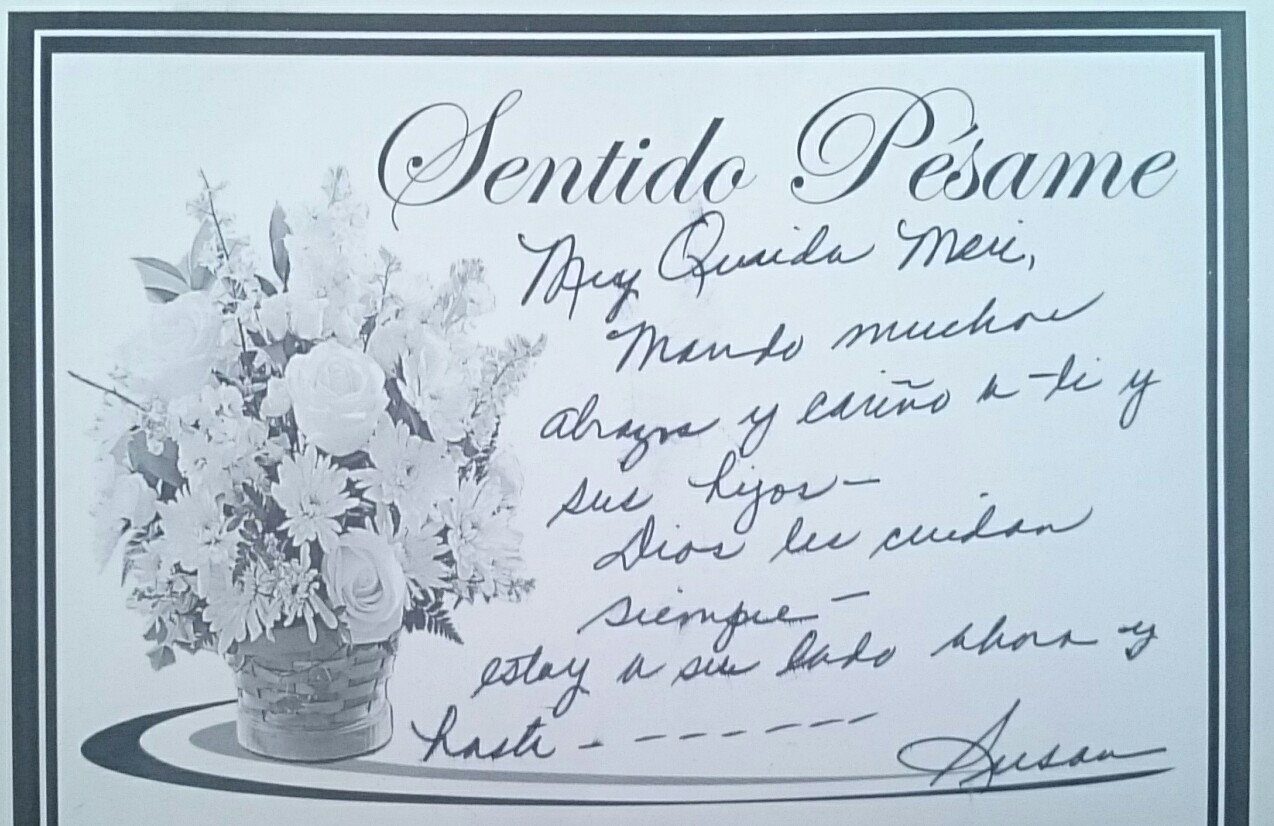 Sentido Pésame
Muy Querida Meri,
Mando muchos
abrazos y cariño a ti y
sus hijos—
Dios les cuidan
siempre—
estoy a su lado ahora y
hasta - - - - - - -
Susan